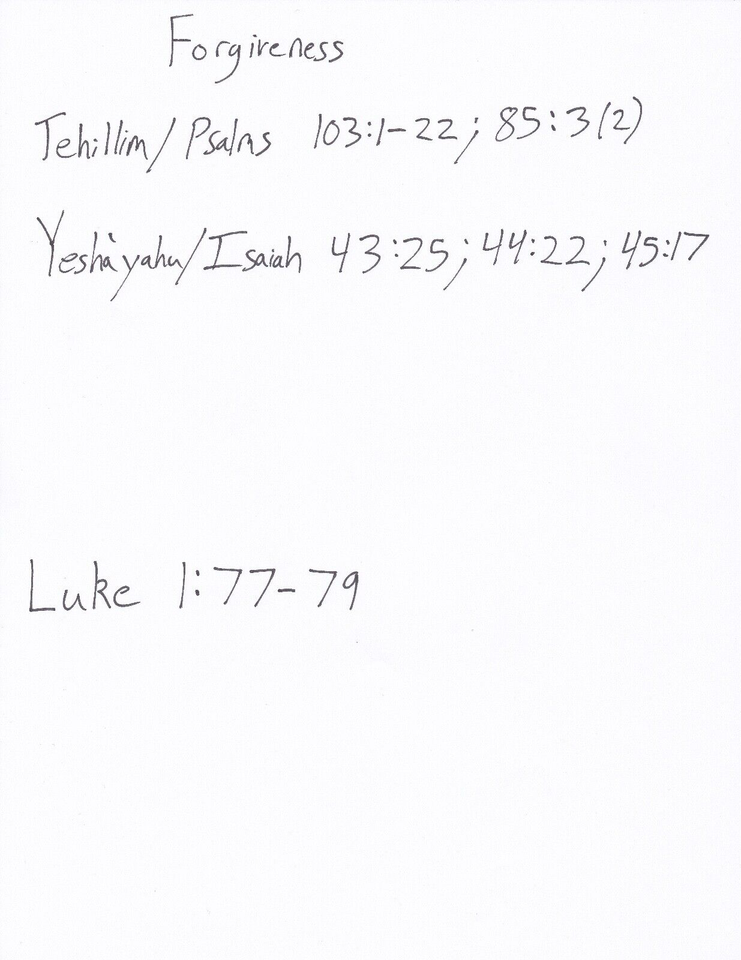 Forgiveness
Tehillim/Psalms 103:1-22; 85:3(2)
Yesha'yahu/Isaiah 43:25; 44:22; 45:17
Luke 1:77-79